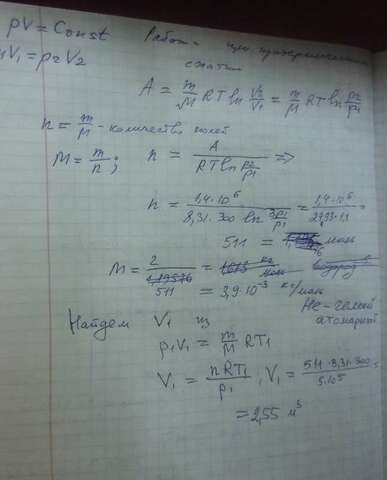 pV = Const
Работа при изотермическом
V₁ = p₂V₂
сжатии
A = m/M RT ln V₂/V₁ = m/M RT ln p₂/p₁
n = m/M - количество молей
M = m/n ; n = A / (RT ln p₂/p₁) =>
n = 1,4·10⁶ / (8,31·300 ln 3p₁/p₁) = 1,4·10⁶ / (2493·1,1) =
511 = моль
M = 2/511 = кг/моль
= 3,9·10⁻³ кг/моль
He - гелий
атомарный
Найдем V₁ из
p₁V₁ = m/M RT₁
V₁ = nRT₁/p₁ ; V₁ = 511·8,31·300 / 5·10⁵ =
= 2,55 м³